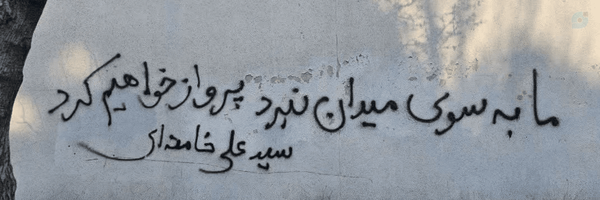 ما به سوی میدان نبرد پرواز خواهیم کرد
سید علی خامنه‌ای